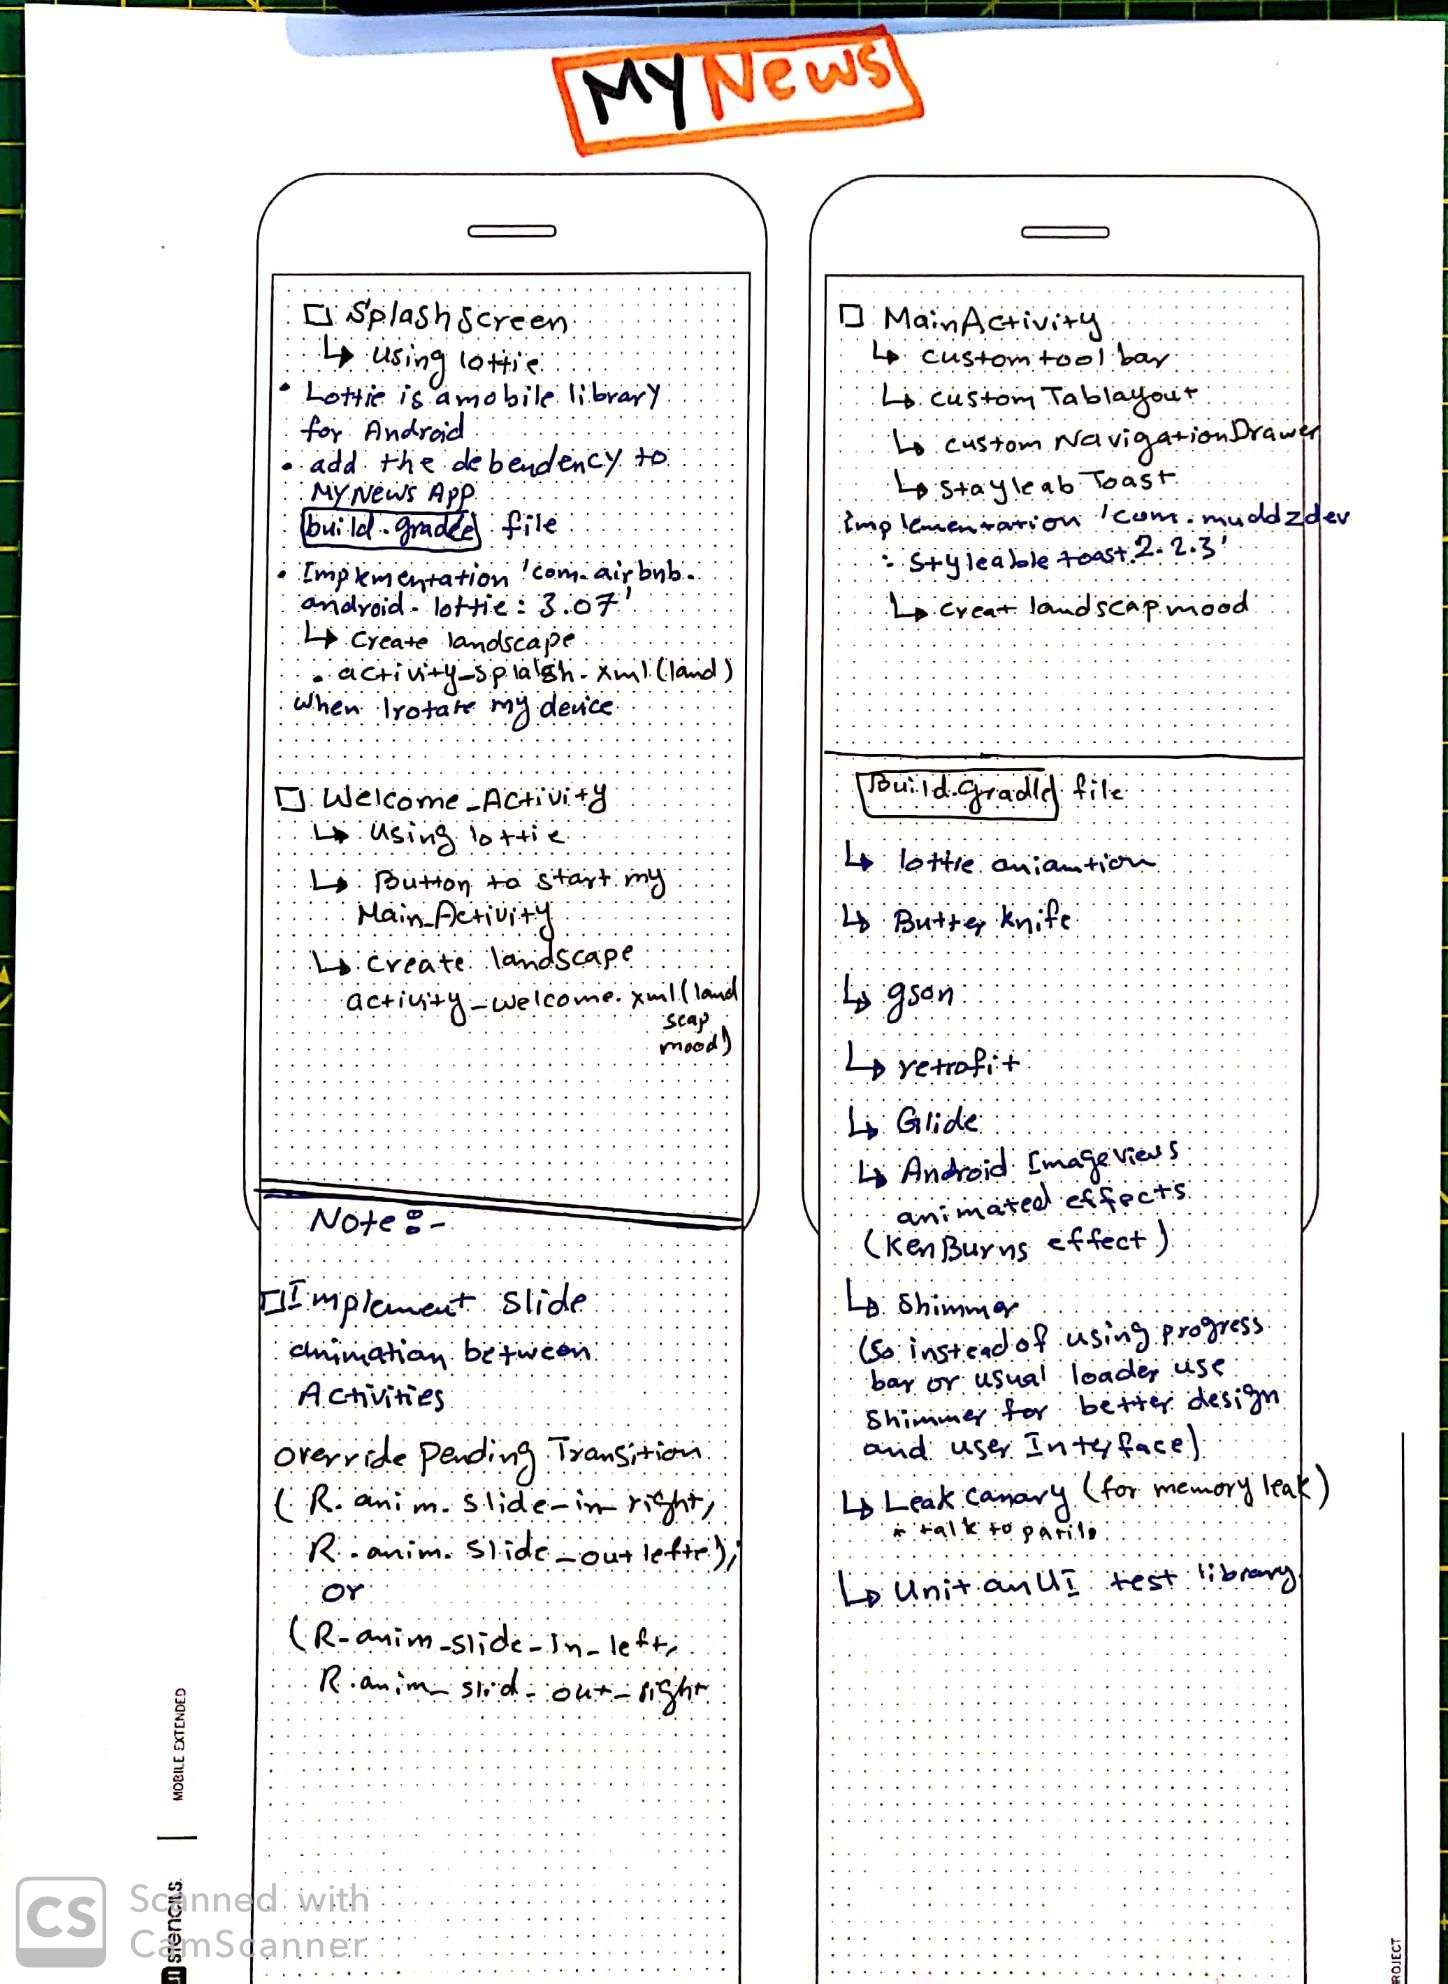 MY News
□ SplashScreen
↳ using lottie
• Lottie is a mobile library
for Android
• add the debendency to
MYNews App
build.gradle file
• Implementation 'com.airbnb.
android. lottie: 3.07'
↳ Create landscape
• activity_splalsh.xml (land)
when I rotate my device
□ Welcome_Activity
↳ Using lottie
↳ Button to start my
Main_Activity
↳ create landscape
activity_welcome.xml (land
scap
mood)
Note :-
□ Implement slide
animation between
Activities
override Pending Transition
( R.anim.slide-in right,
R.anim.slide_out lefte);
or
( R-anim_slide_in_left,
R.anim_slid_out_right
□ MainActivity
↳ custom tool bar
↳ custom Tablayout
↳ custom NavigationDrawer
↳ stayleab Toast
Implementation 'com.muddzdev
: styleable toast:2.2.3'
↳ creat landscap mood
Build.Gradle file
↳ lottie aniamtion
↳ Butter knife
↳ gson
↳ retrofit
↳ Glide
↳ Android Imageviews
animated effects
(KenBurns effect)
↳ Shimmer
(So instead of using progress
bar or usual loader use
Shimmer for better design
and user Interface)
↳ Leak canary (for memory leak)
* talk to
↳ Unit an UI test library
MOBILE EXTENDED
stencils
PROJECT
CS
Scanned with
CamScanner